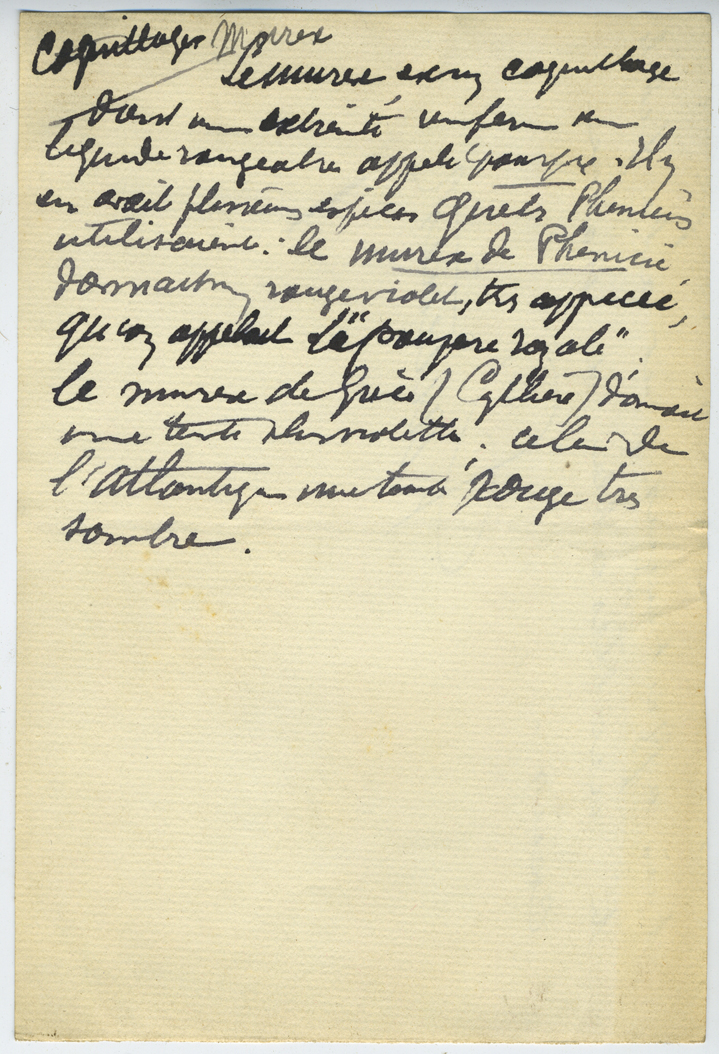 Coquillages Murex
Le murex est un coquillage
dont une extrémité renferme un
liquide rougeatre appelé pourpre. Il y
en avait plusieurs espèces que les Phéniciens
utilisaient : le murex de Phénicie
donnait un rouge violet, très apprécié,
qu'on appelait la "pourpre royale".
le murex de Grèce (Cythère) donnait
une teinte plus violette, celui de
l'Atlantique une teinte rouge très
sombre.